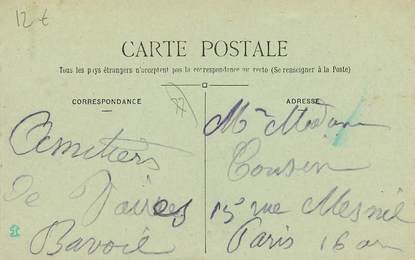 12 €
CARTE POSTALE
Tous les pays étrangers n'acceptent pas la correspondance au recto (Se renseigner à la Poste)
CORRESPONDANCE
77
ADRESSE
Amitiers
De Vaires
Bavoil
Mr Madam
Cousin
15 rue Mesnil
Paris 16 arr